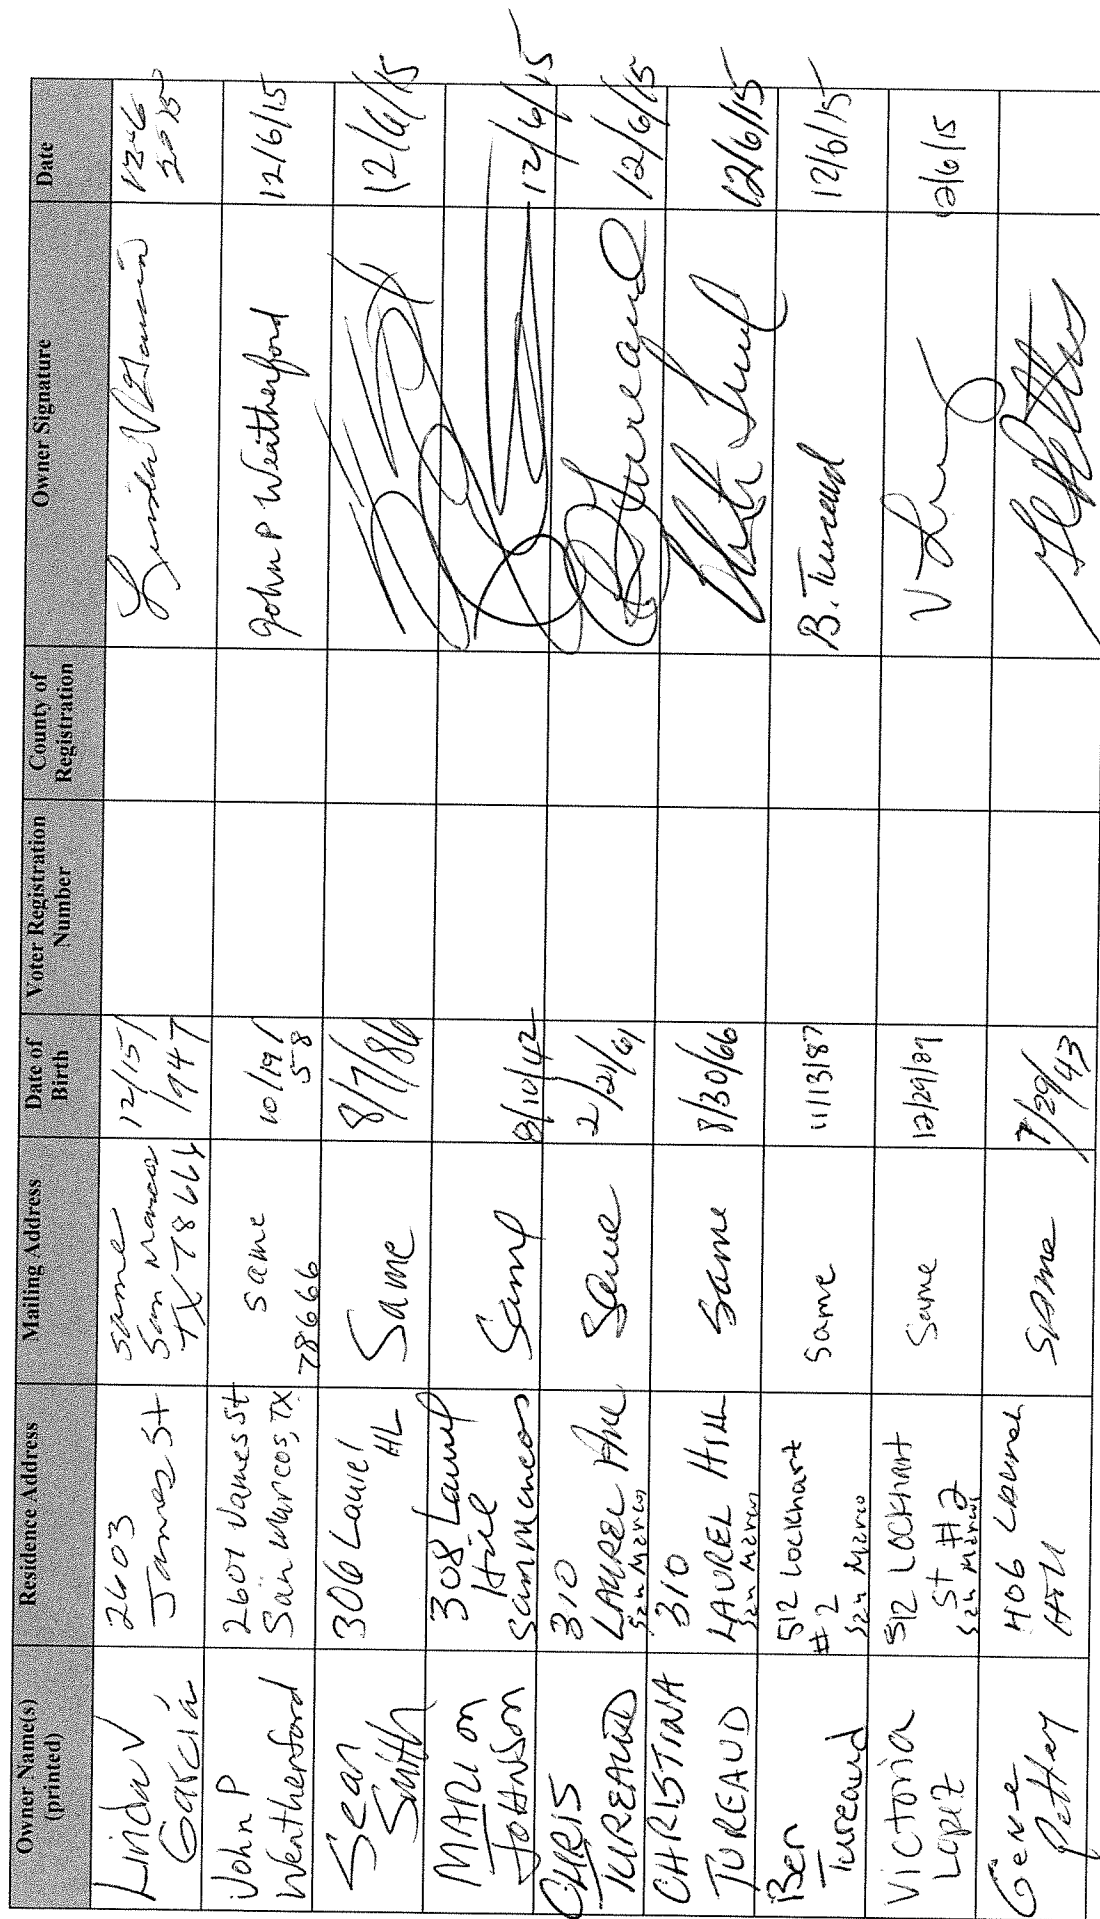 Owner Name(s) (printed) Residence Address Mailing Address Date of Birth Voter Registration Number County of Registration Owner Signature Date
Linda V Garcia 2603 James St same San Marcos TX 78666 12/15/1947 12-6 2015
John P Weatherford 2601 James St San Marcos, TX same 78666 10/19/58 John P Weatherford 12/6/15
Sean Smith 306 Laurel HL Same 8/7/86 12/6/15
MARION JOHNSON 308 Laurel Hill San Marcos Same 9/10/42 12/6/15
CHRIS TUREAUD 310 LAUREL San Marcos Same 2/20/61 Tureaud 12/6/15
CHRISTINA TUREAUD 310 LAUREL HILL San Marcos Same 8/30/66 12/6/15
Ben Tureaud 512 Lockhart #2 San Marcos Same 11/13/87 B. Tureaud 12/6/15
Victoria Lopez 512 LOCKHART St #2 San Marcos Same 12/29/89 12/6/15
Gene Pettey 406 Laurel Hill SAME 7/29/43